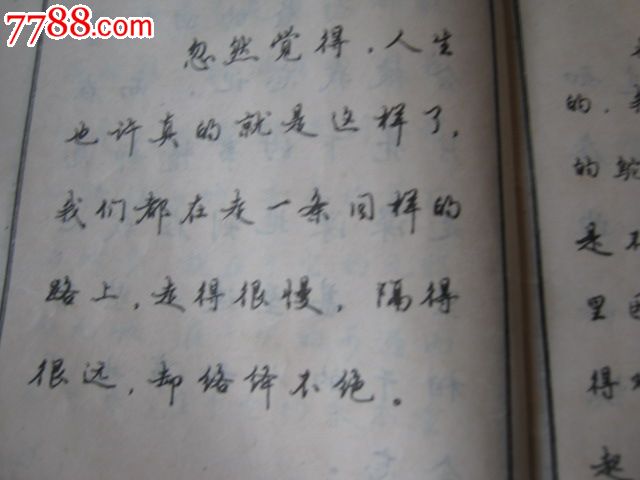 7788.com
忽然觉得，人生
也许真的就是这样了，
我们都在走一条同样的
路上，走得很慢，隔得
很远，却络绎不绝。
的，
的鸵
是不
里
得
起